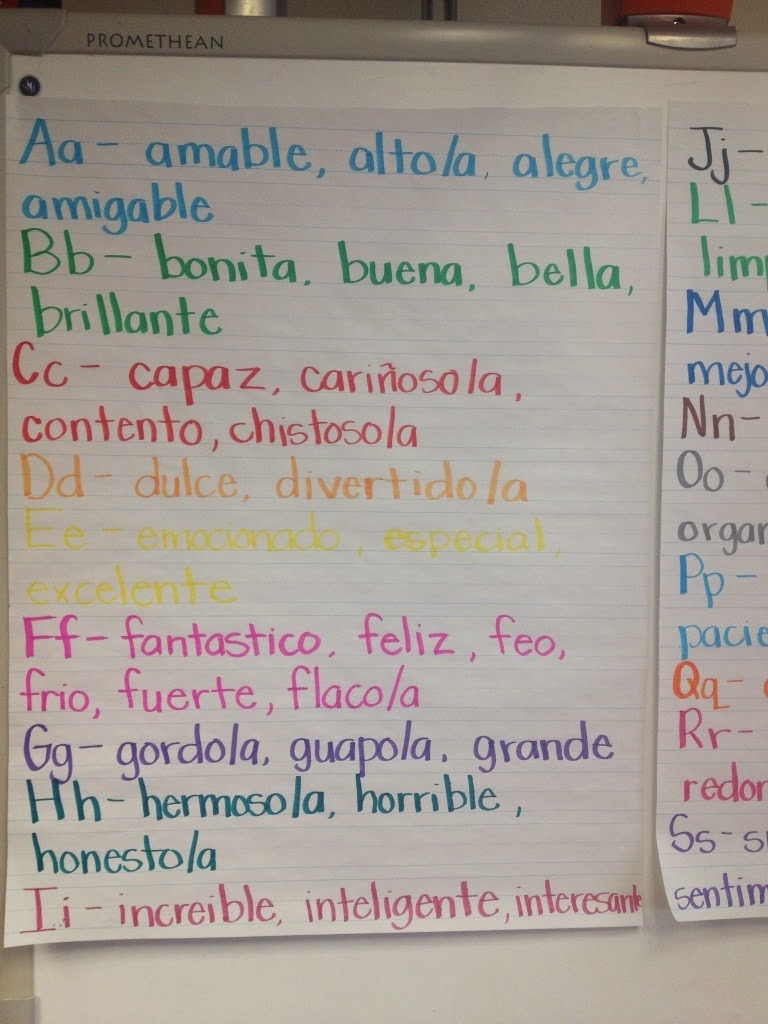 PROMETHEAN
Aa - amable, alto/a, alegre,
amigable
Bb - bonita, buena, bella,
brillante
Cc - capaz, cariñoso/a,
contento, chistoso/a
Dd - dulce, divertido/a
Ee - emocionado, especial,
excelente
Ff - fantastico, feliz, feo,
frio, fuerte, flaco/a
Gg - gordo/a, guapo/a, grande
Hh - hermoso/a, horrible,
honesto/a
Ii - increible, inteligente, interesante
Jj -
Ll -
Mm
Nn -
Oo -
Pp -
Qq -
Rr -
Ss -